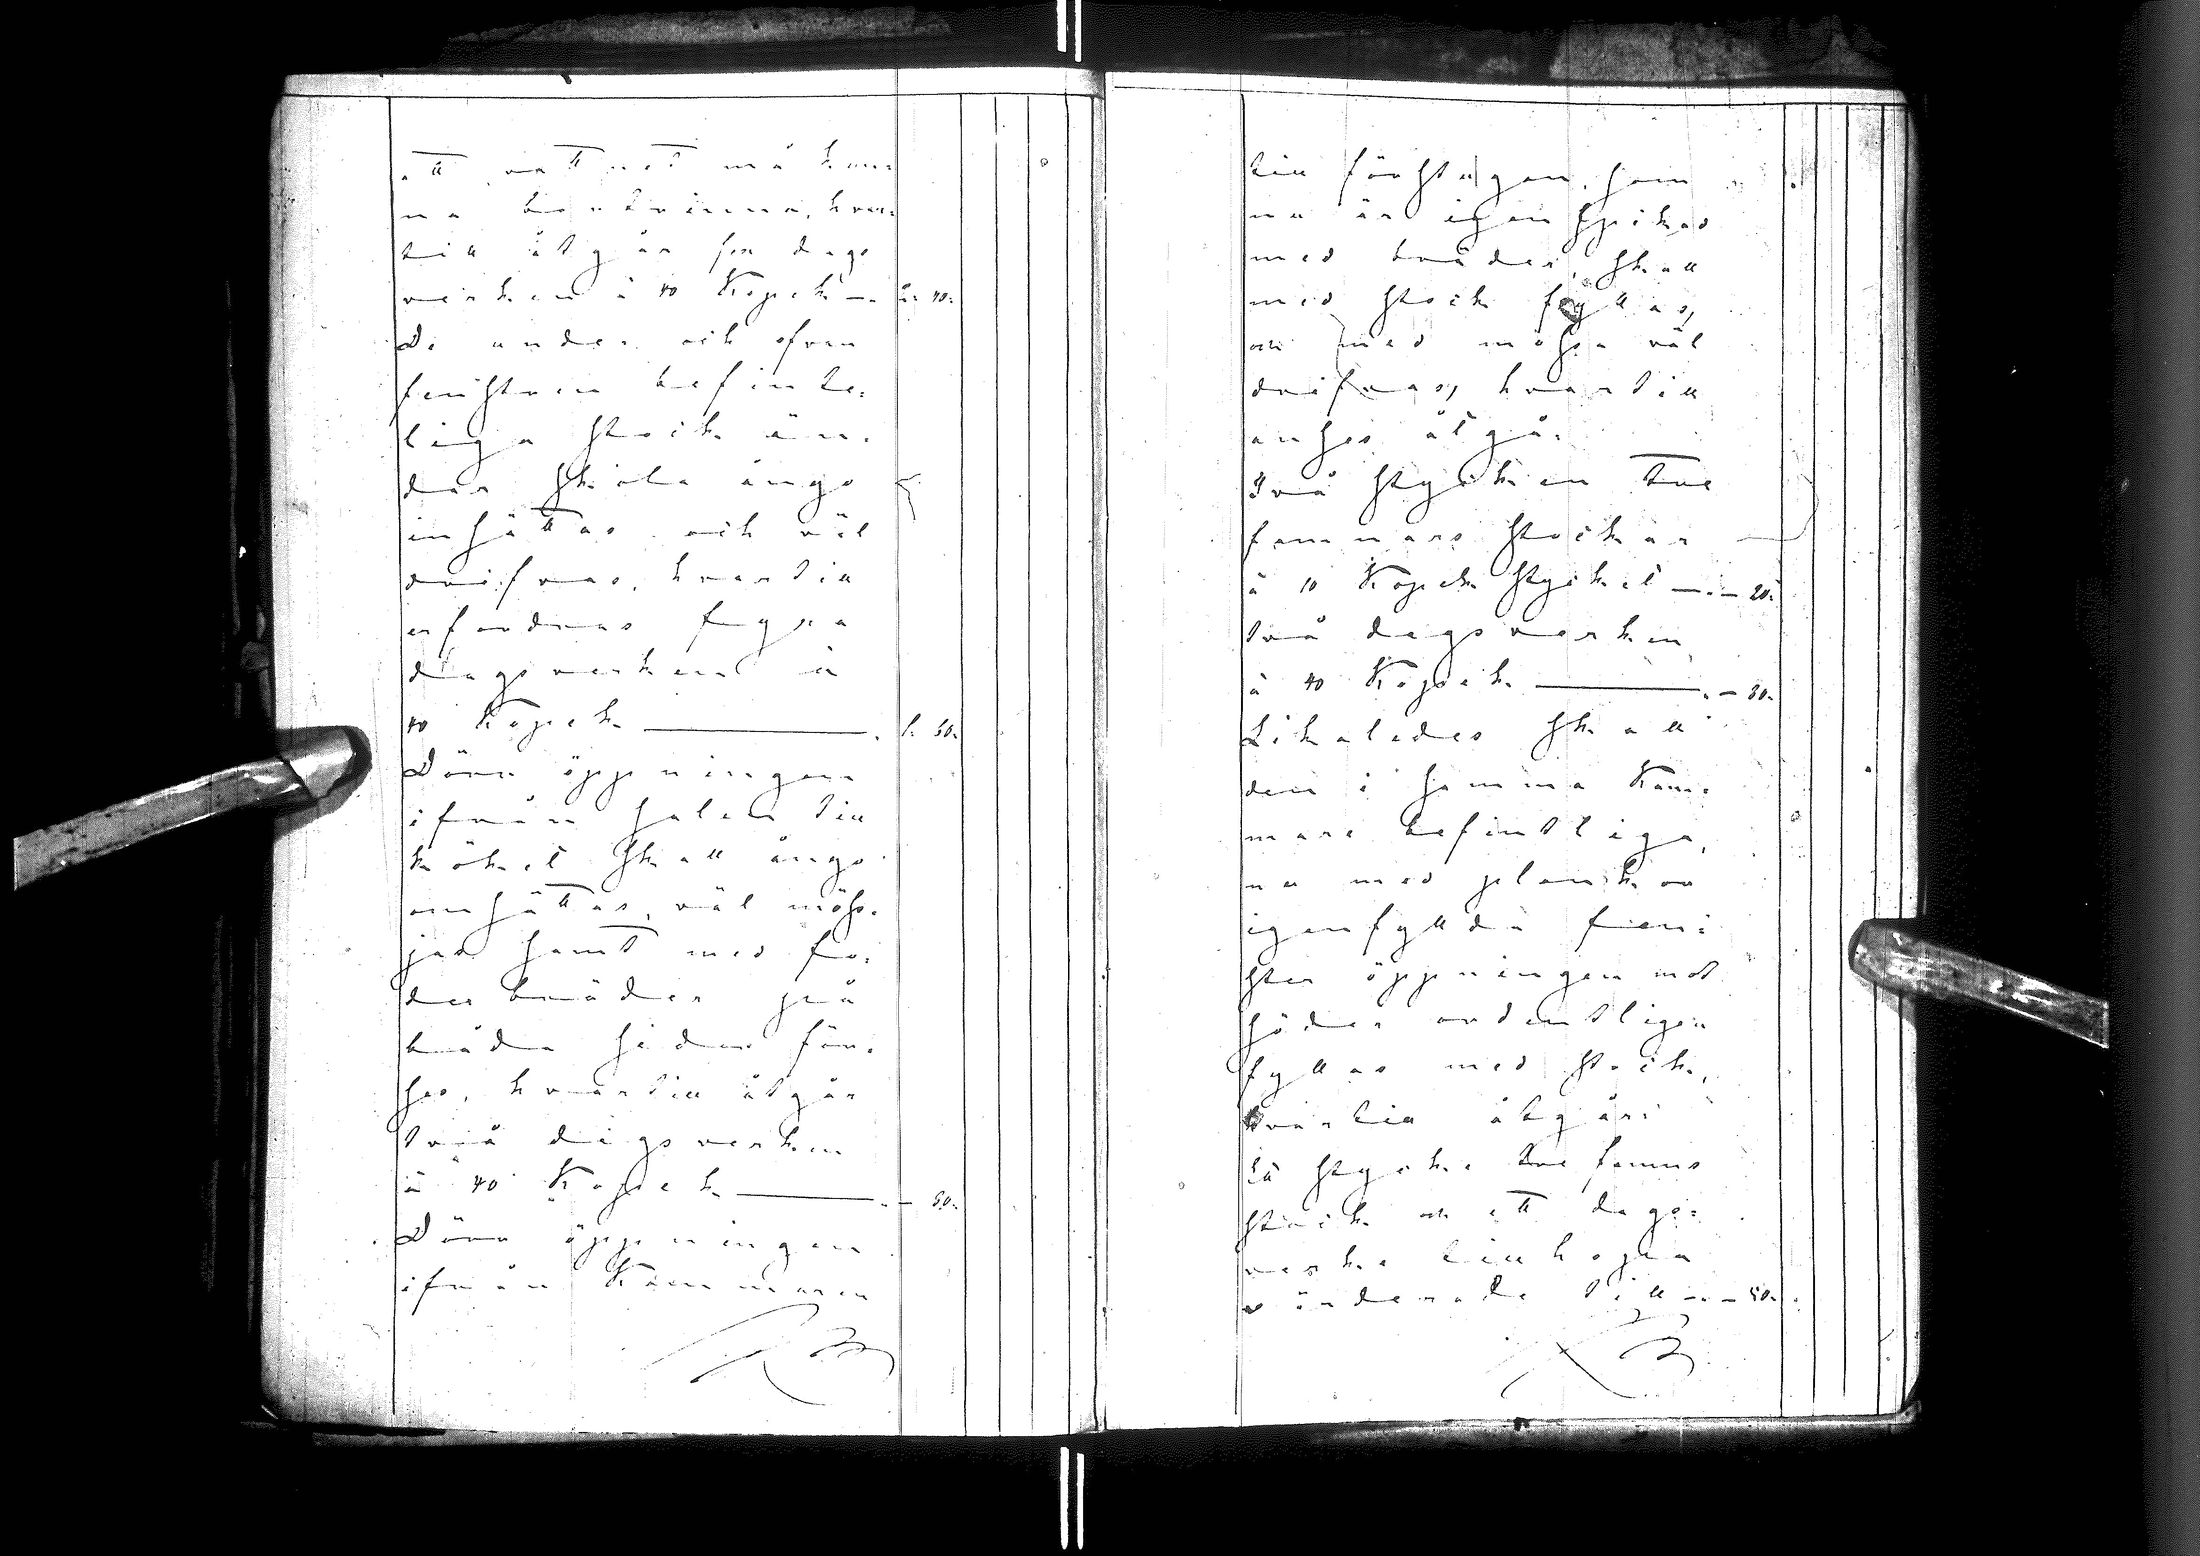 att vattnet må kun¬
na bortrinna, hvar¬
till åtgår sex dags
verken à 40 Kopek —. 2. 40.
De under och ofvan
fenstren befinte¬
liga stock än¬
dar skola ånyo
insättas och väl
drifvas, hvartill
erfordras fyra
dagsverken à
40 Kopek —. 1. 60.
Dörr öppningen
ifrån salen till
köket skall ånyo
omsättas, väl mös¬
jas samt med fo¬
der bräder på
båda sidor för¬
ses, hvartill åtgår
två dagsverken
à 40 Kopek —. — 80.
Dörr öppningen
ifrån Kammaren
till förstugan, som
nu är igen spikad
med bräder, skall
med stock fyllas,
och med mossa väl
drifvas, hvartill
anses åtgå:
Två stycken tve
famnars stockar
à 10 Kopek stycket —. — 20.
två dagsverken
à 40 Kopek —. — 80.
Likaledes skall
den i samma Kam¬
mare befintliga,
nu med plankor
igenfyllda fen¬
ster öppningen mot
söder ordentligen
fyllas med stock,
hvartill åtgår:
ett stycke tve famns
stock och ett dags¬
verke tillhopa
värderade till —. — 50.